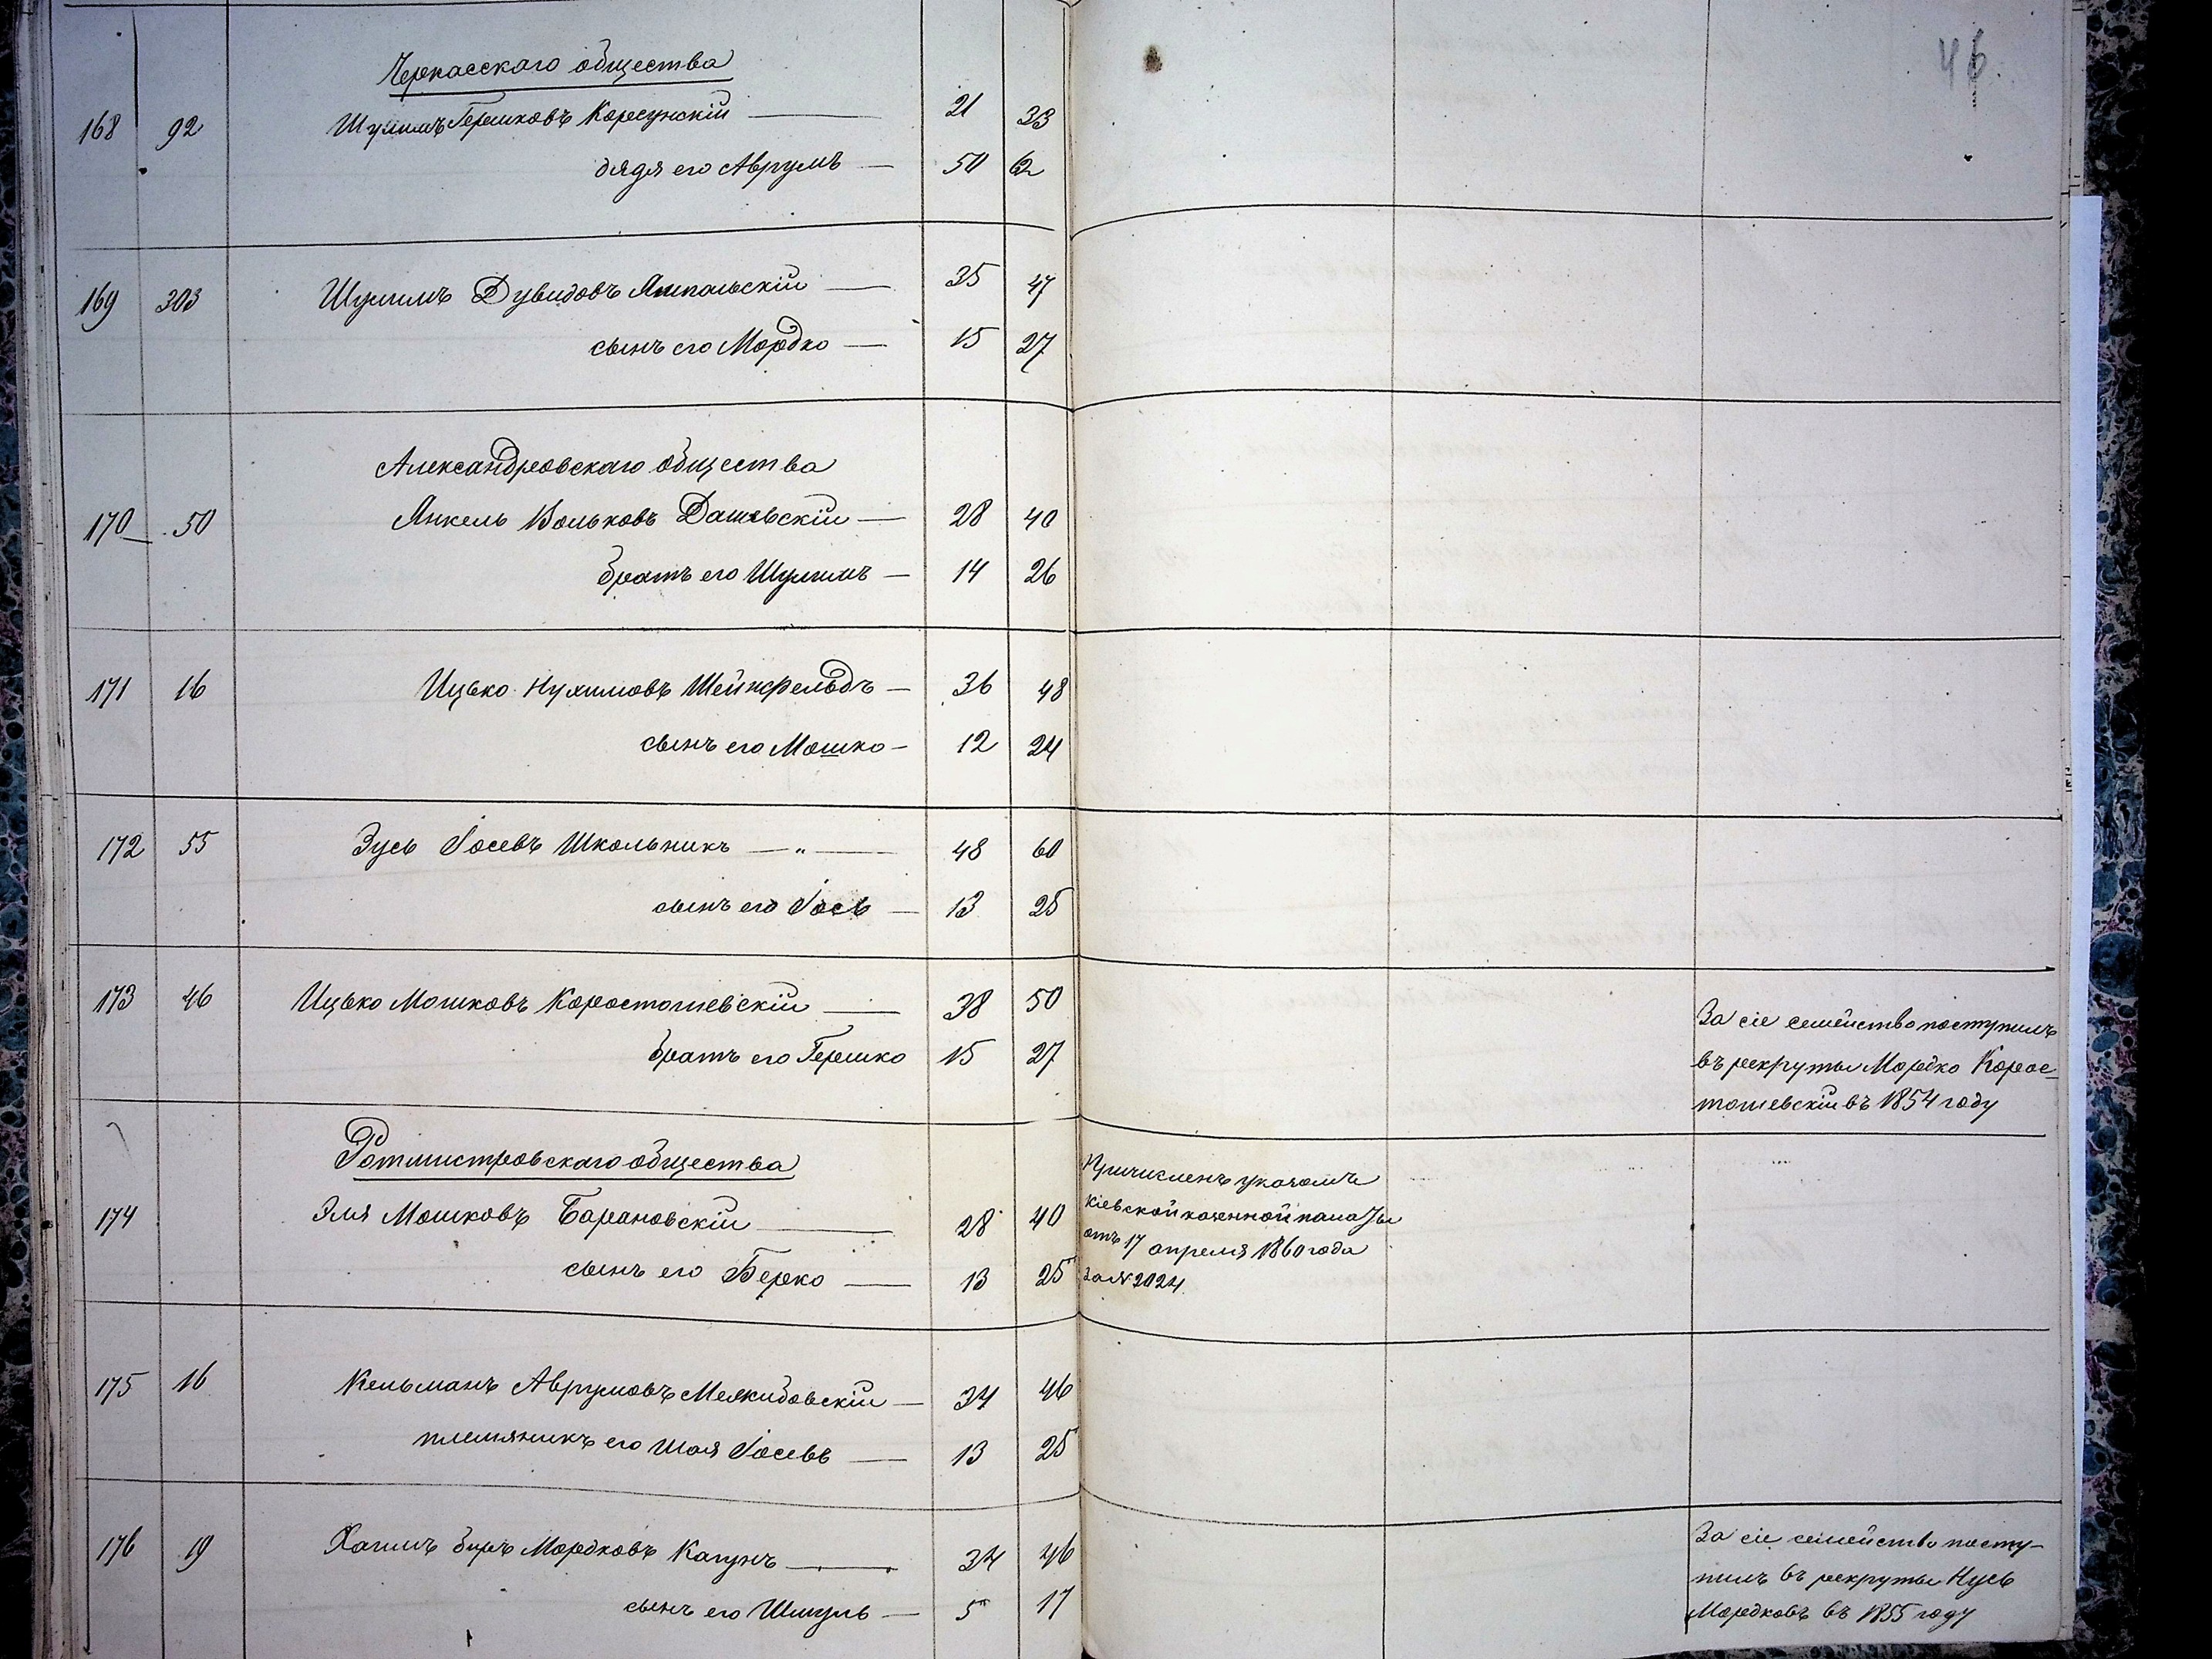 46.
Черкасскаго общества
168 92 Шулимъ Гершковъ Корсунскій — 21 33
дядя его Аврумъ — 50 62
169 303 Шулимъ Дувидовъ Ямпольскій — 35 47
сынъ его Мордко — 15 27
Александровскаго общества
170 50 Янкель Вольковъ Дашевскій — 28 40
братъ его Шулимъ — 14 26
171 16 Ицько Нухимовъ Шейнфельдъ — 36 48
сынъ его Мошко — 12 24
172 55 Зусь Іосевъ Школьникъ — " — 48 60
сынъ его Іось — 13 25
173 46 Ицько Мошковъ Коростошевскій — 38 50
братъ его Гершко 15 27
За сіе семейство поступилъ
въ рекруты Мордко Корос-
тошевскій въ 1854 году
Ротмистровскаго общества
174 Эля Мошковъ Барановскій — 28 40
сынъ его Берко — 13 25
Причисленъ указомъ
Кіевской казенной палаты
отъ 17 апреля 1860 года
за № 2024.
175 16 Кельманъ Аврумовъ Мелкидовскій — 34 46
племяникъ его Шая Іосевъ — 13 25
176 19 Хаимъ Беръ Мордковъ Кагунъ — 34 46
сынъ его Шмуль — 5 17
За сіе семейство посту-
пилъ въ рекруты Нусь
Мордковъ въ 1855 году